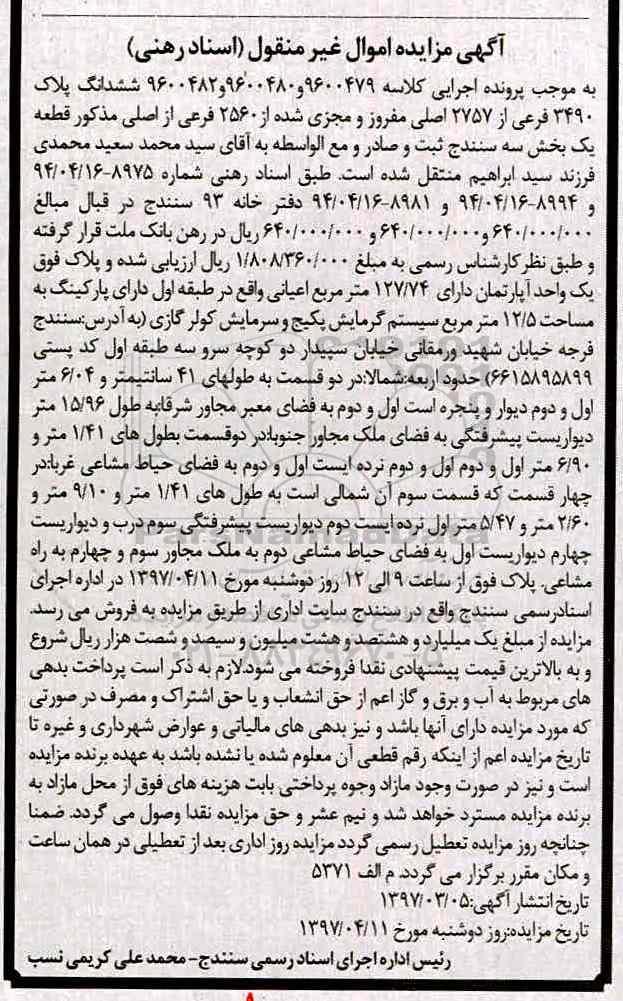 آگهی مزایده اموال غیر منقول (اسناد رهنی)
به موجب پرونده اجرایی کلاسه ۹۶۰۰۴۷۹و۹۶۰۰۴۸۰و۹۶۰۰۴۸۲ ششدانگ پلاک
۳۴۹۰ فرعی از ۲۷۵۷ اصلی مفروز و مجزی شده از ۲۵۶۰ فرعی از اصلی مذکور قطعه
یک بخش سه سنندج ثبت و صادر و مع الواسطه به آقای سید محمد سعید محمدی
فرزند سید ابراهیم منتقل شده است. طبق اسناد رهنی شماره ۸۹۷۵-۹۴/۰۴/۱۶
و ۸۹۹۴-۹۴/۰۴/۱۶ و ۸۹۸۱-۹۴/۰۴/۱۶ دفتر خانه ۹۳ سنندج در قبال مبالغ
۶۴۰/۰۰۰/۰۰۰ و۶۴۰/۰۰۰/۰۰۰ و ۶۴۰/۰۰۰/۰۰۰ ریال در رهن بانک ملت قرار گرفته
و طبق نظر کارشناس رسمی به مبلغ ۱/۸۰۸/۳۶۰/۰۰۰ ریال ارزیابی شده و پلاک فوق
یک واحد آپارتمان دارای ۱۲۷/۷۴ متر مربع اعیانی واقع در طبقه اول دارای پارکینگ به
مساحت ۱۲/۵ متر مربع سیستم گرمایش پکیج و سرمایش کولر گازی (به آدرس:سنندج
فرجه خیابان شهید ورمقانی خیابان سپیدار دو کوچه سرو سه طبقه اول کد پستی
۶۶۱۵۸۹۵۸۹۹) حدود اربعه:شمالا:در دو قسمت به طولهای ۴۱ سانتیمتر و ۶/۰۴ متر
اول و دوم دیوار و پنجره است اول و دوم به فضای معبر مجاور شرقا:به طول ۱۵/۹۶ متر
دیواریست پیشرفتگی به فضای ملک مجاور جنوبا:در دوقسمت بطول های ۱/۴۱ متر و
۶/۹۰ متر اول و دوم اول و دوم نرده ایست اول و دوم به فضای حیاط مشاعی غربا:در
چهار قسمت که قسمت سوم آن شمالی است به طول های ۱/۴۱ متر و ۹/۱۰ متر و
۲/۶۰ متر و ۵/۴۷ متر اول نرده ایست دوم دیواریست پیشرفتگی سوم درب و دیواریست
چهارم دیواریست اول به فضای حیاط مشاعی دوم به ملک مجاور سوم و چهارم به راه
مشاعی. پلاک فوق از ساعت ۹ الی ۱۲ روز دوشنبه مورخ ۱۳۹۷/۰۴/۱۱ در اداره اجرای
اسنادرسمی سنندج واقع در سنندج سایت اداری از طریق مزایده به فروش می رسد.
مزایده از مبلغ یک میلیارد و هشتصد و هشت میلیون و سیصد و شصت هزار ریال شروع
و به بالاترین قیمت پیشنهادی نقدا فروخته می شود.لازم به ذکر است پرداخت بدهی
های مربوط به آب و برق و گاز اعم از حق انشعاب و یا حق اشتراک و مصرف در صورتی
که مورد مزایده دارای آنها باشد و نیز بدهی های مالیاتی و عوارض شهرداری و غیره تا
تاریخ مزایده اعم از اینکه رقم قطعی آن معلوم شده یا نشده باشد به عهده برنده مزایده
است و نیز در صورت وجود مازاد وجوه پرداختی بابت هزینه های فوق از محل مازاد به
برنده مزایده مسترد خواهد شد و نیم عشر و حق مزایده نقدا وصول می گردد. ضمنا
چنانچه روز مزایده تعطیل رسمی گردد مزایده روز اداری بعد از تعطیلی در همان ساعت
و مکان مقرر برگزار می گردد. م الف ۵۳۷۱
تاریخ انتشار آگهی:۱۳۹۷/۰۳/۰۵
تاریخ مزایده:روز دوشنبه مورخ ۱۳۹۷/۰۴/۱۱
رئیس اداره اجرای اسناد رسمی سنندج- محمد علی کریمی نسب
۸